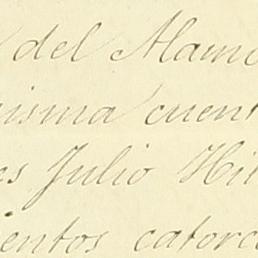 del Alam
isma cuen
es Julio Hil
ientos catorc